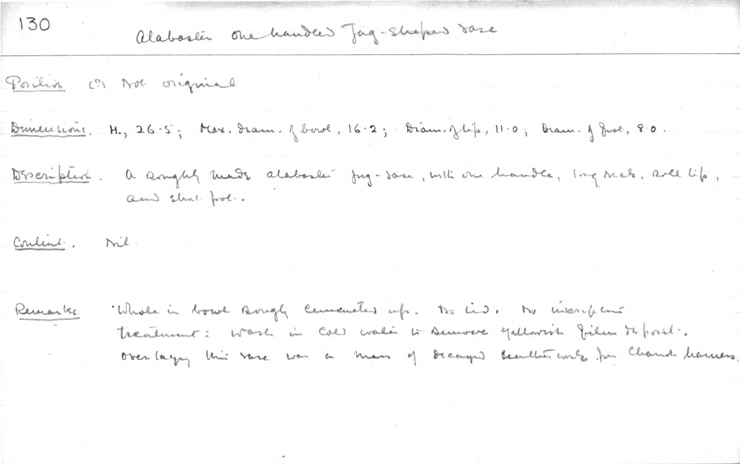 130
Alabaster one handled Jug-shaped vase
Position (?) Not original
Dimensions. H., 26·5; Max. diam. of bowl, 16·2; Diam. of lip, 11·0; Diam. of foot, 8·0.
Description. A roughly made alabaster jug-vase, with one handle, long neck, roll lip,
and short foot.
Content. Nil
Remarks. Whole in bowl roughly cemented up. No lid. No inscription
treatment: wash in cold water to remove yellowish film deposit.
Overlaying this vase was a mass of decayed leatherwork from Chariot harness.